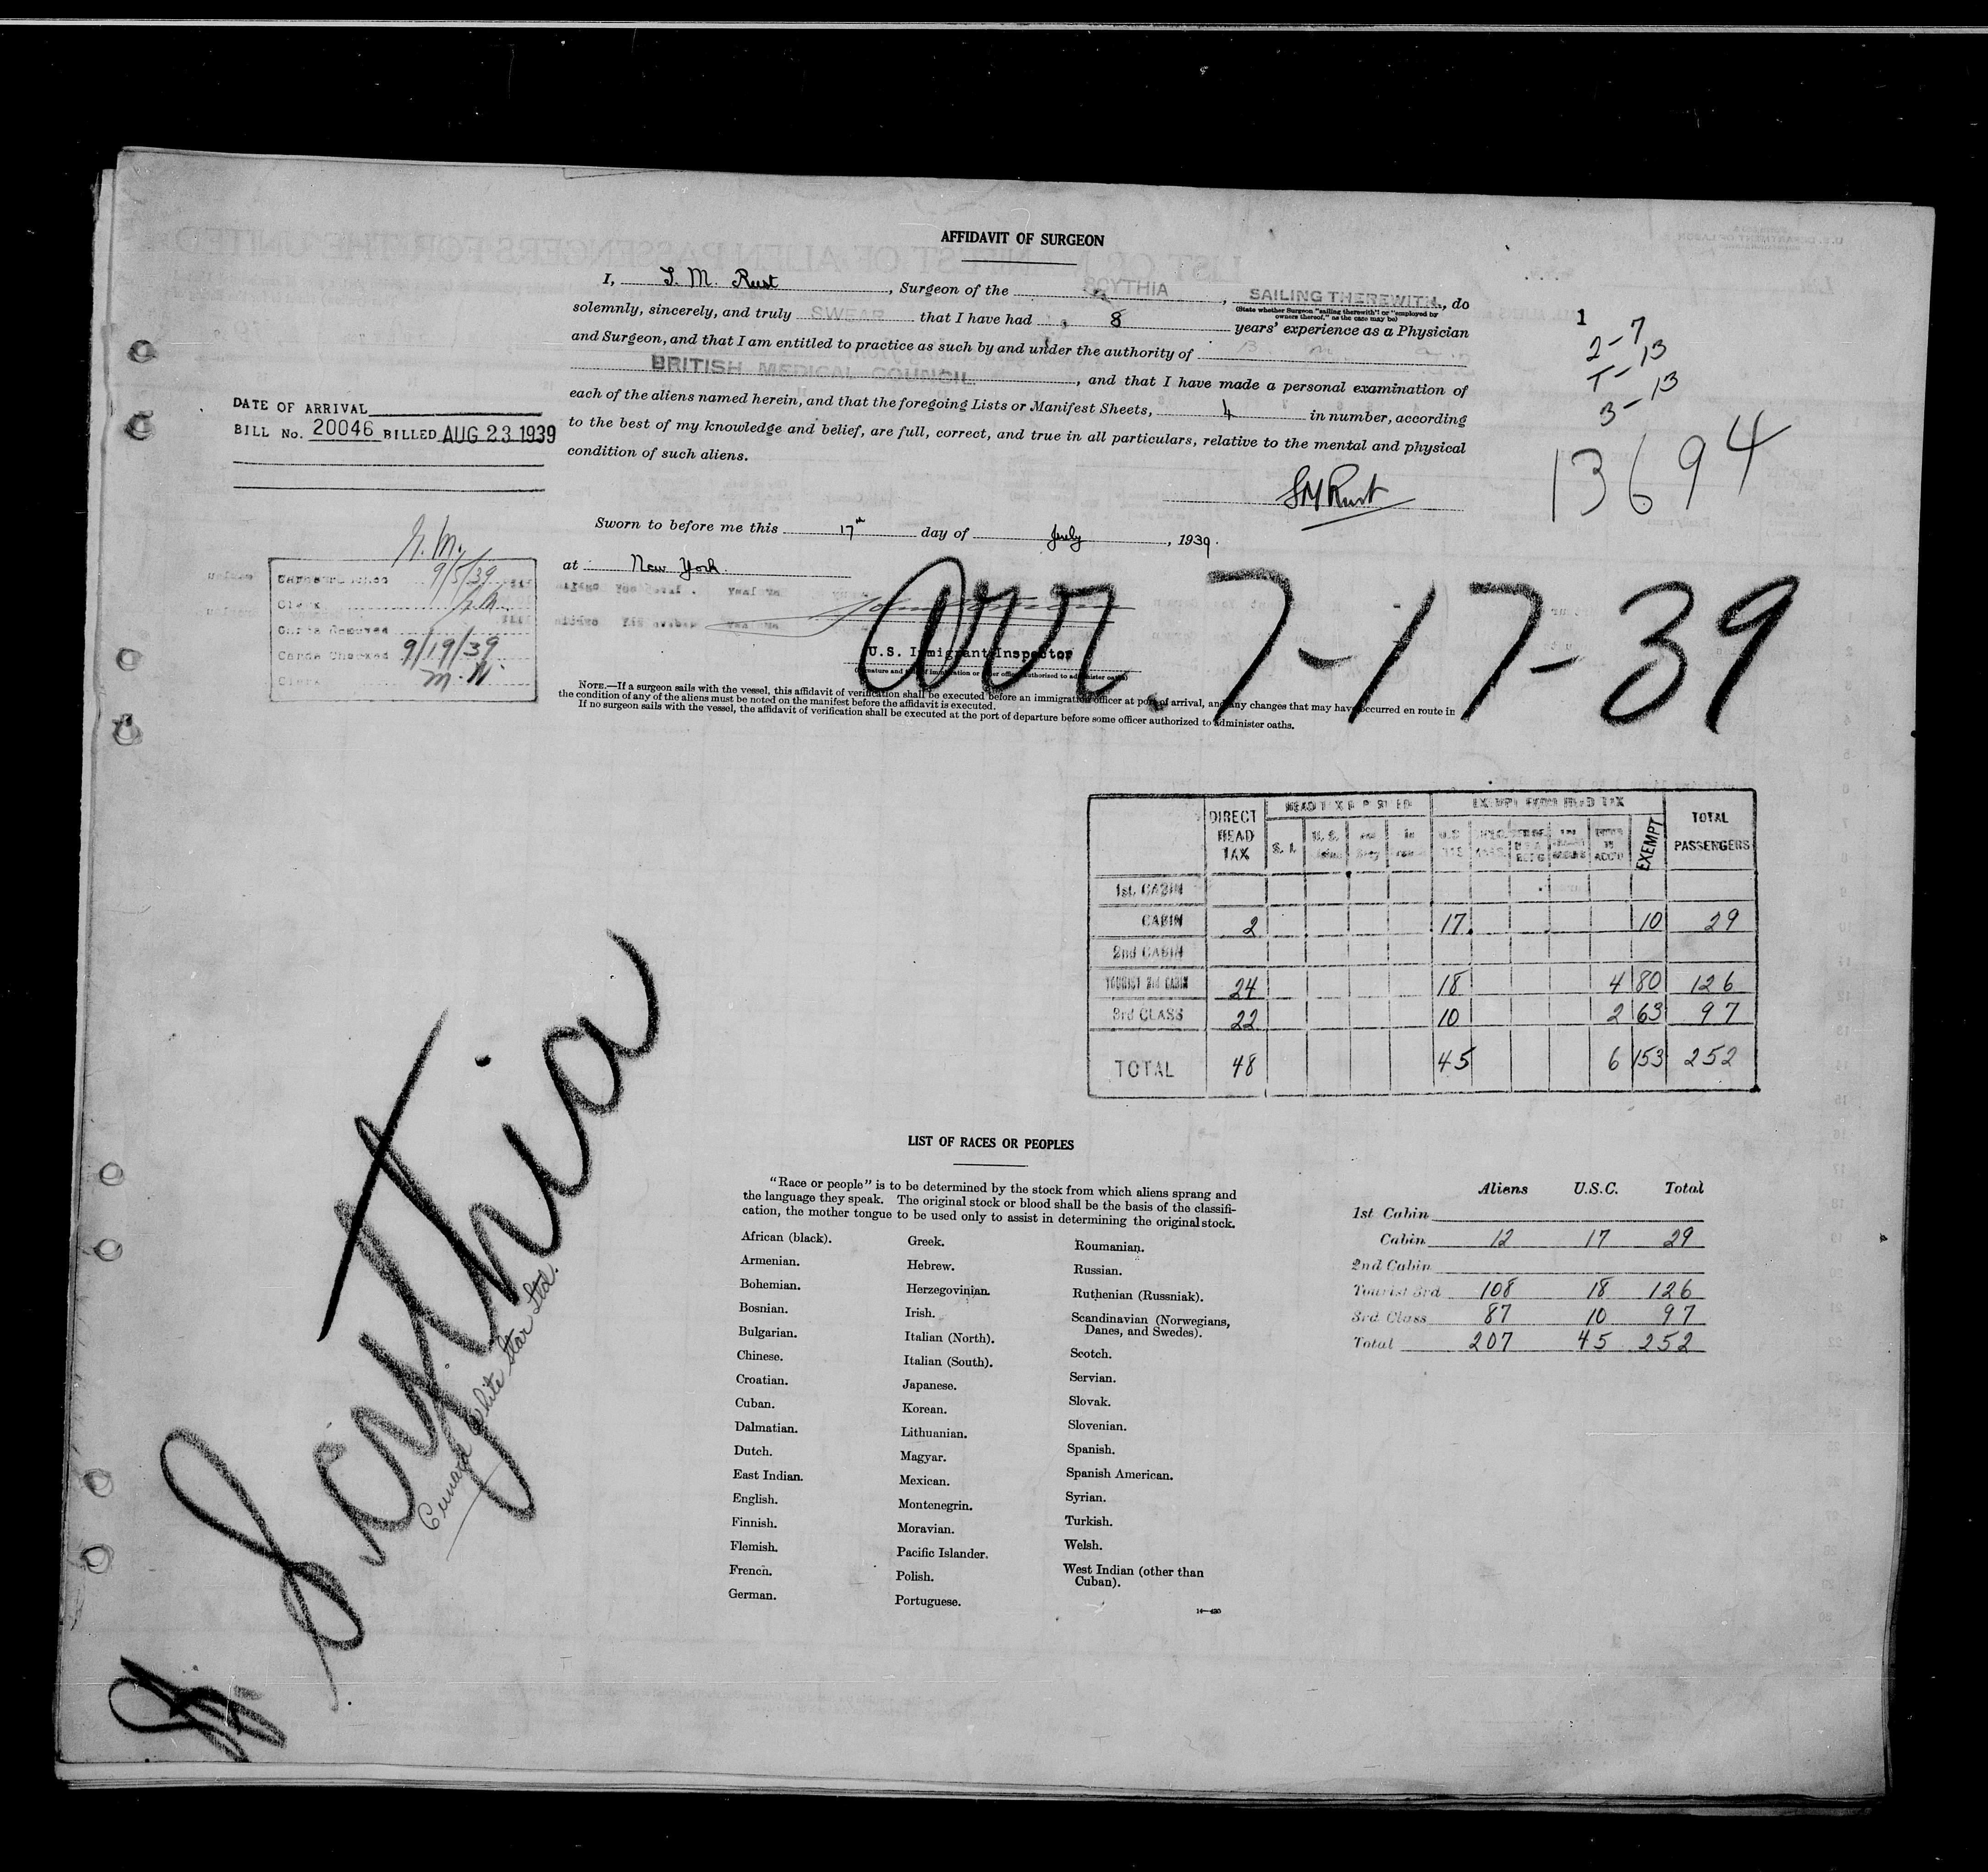 AFFIDAVIT OF SURGEON
I, S. M. Rust, Surgeon of the SCYTHIA, SAILING THEREWITH, do
(State whether Surgeon "sailing therewith" or "employed by
owners thereof," as the case may be)
solemnly, sincerely, and truly SWEAR that I have had 8 years' experience as a Physician
and Surgeon, and that I am entitled to practice as such by and under the authority of
BRITISH MEDICAL COUNCIL, and that I have made a personal examination of
each of the aliens named herein, and that the foregoing Lists or Manifest Sheets, 4 in number, according
to the best of my knowledge and belief, are full, correct, and true in all particulars, relative to the mental and physical
condition of such aliens.
SM Rust
Sworn to before me this 17th day of July, 1939.
at New York
U.S. Immigrant Inspector
NOTE.—If a surgeon sails with the vessel, this affidavit of verification shall be executed before an immigration officer at port of arrival, and any changes that may have occurred en route in
the condition of any of the aliens must be noted on the manifest before the affidavit is executed.
If no surgeon sails with the vessel, the affidavit of verification shall be executed at the port of departure before some officer authorized to administer oaths.
1
2-7
T-13
3-13
13694
DATE OF ARRIVAL
BILL No. 20046 BILLED AUG 23 1939
9/5/39
Clerk
Cards Checked 9/19/39
Clerk M.W.
arr. 7-17-39
DIRECT HEAD TAX
EXEMPT FROM HEAD TAX
EXEMPT
TOTAL PASSENGERS
1st. CABIN
CABIN 2 17 10 29
2nd CABIN
TOURIST 3rd CABIN 24 18 4 80 126
3rd CLASS 22 10 2 63 97
TOTAL 48 45 6 153 252
Scythia
Cunard White Star Ltd.
LIST OF RACES OR PEOPLES
"Race or people" is to be determined by the stock from which aliens sprang and
the language they speak. The original stock or blood shall be the basis of the classifi-
cation, the mother tongue to be used only to assist in determining the original stock.
African (black).
Armenian.
Bohemian.
Bosnian.
Bulgarian.
Chinese.
Croatian.
Cuban.
Dalmatian.
Dutch.
East Indian.
English.
Finnish.
Flemish.
French.
German.
Greek.
Hebrew.
Herzegovinian.
Irish.
Italian (North).
Italian (South).
Japanese.
Korean.
Lithuanian.
Magyar.
Mexican.
Montenegrin.
Moravian.
Pacific Islander.
Polish.
Portuguese.
Roumanian.
Russian.
Ruthenian (Russniak).
Scandinavian (Norwegians,
Danes, and Swedes).
Scotch.
Servian.
Slovak.
Slovenian.
Spanish.
Spanish American.
Syrian.
Turkish.
Welsh.
West Indian (other than
Cuban).
Aliens U.S.C. Total
1st Cabin
Cabin 12 17 29
2nd Cabin
Tourist 3rd 108 18 126
3rd Class 87 10 97
Total 207 45 252